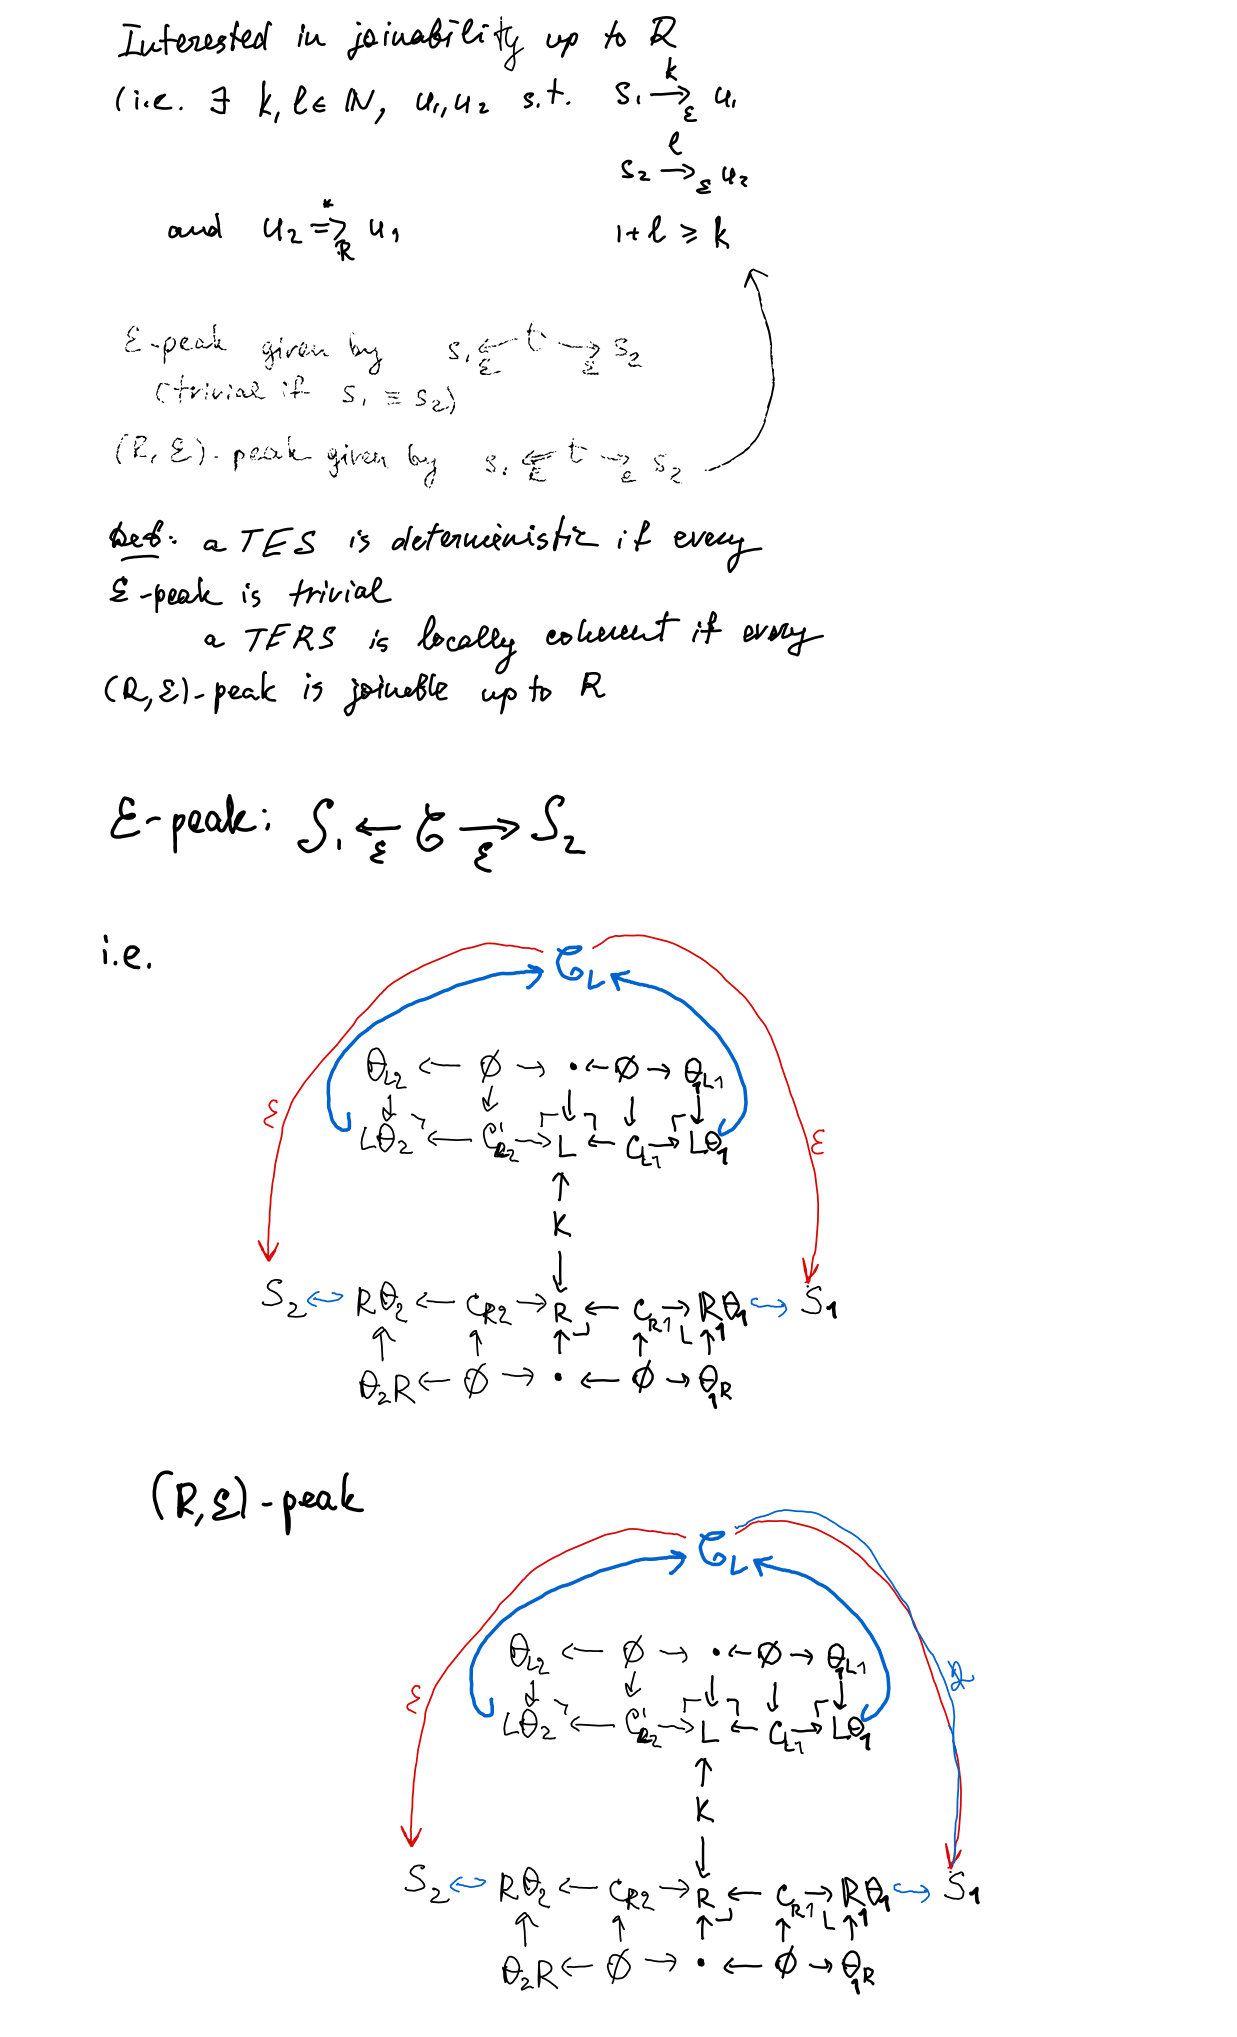 Interested in joinability up to R
(i.e. ∃ k, l ∈ ℕ, u₁, u₂ s.t. S₁ →^k_ε u₁
S₂ →^l_ε u₂
and u₂ ⇒^*_R u₁ 1+l ≥ k
ε-peak given by s₁ ←_ε t →_ε s₂
(trivial if s₁ ≡ s₂)
(R, ε)-peak given by s₁ ⇐_R t →_ε s₂
Def: a TES is deterministic if every
ε-peak is trivial
a TERS is locally coherent if every
(R, ε)-peak is joinable up to R
ε-peak: S₁ ←_ε 𝒯 →_ε S₂
i.e. 𝒯_L
θ_L2 ← ∅ → • ← ∅ → θ_1L1
ε Lθ₂ ← C'_R2 → L ← C_L1 → Lθ₁ ε
↑
K
↓
S₂ ↔ Rθ₂ ← C_R2 → R ← C_R1 → Rθ₁ ↔ S₁
θ₂R ← ∅ → • ← ∅ → θ_1R
(R, ε)-peak
𝒯_L
θ_L2 ← ∅ → • ← ∅ → θ_1L1
ε Lθ₂ ← C'_R2 → L ← C_L1 → Lθ₁ R
↑
K
↓
S₂ ↔ Rθ₂ ← C_R2 → R ← C_R1 → Rθ₁ ↔ S₁
θ₂R ← ∅ → • ← ∅ → θ_1R